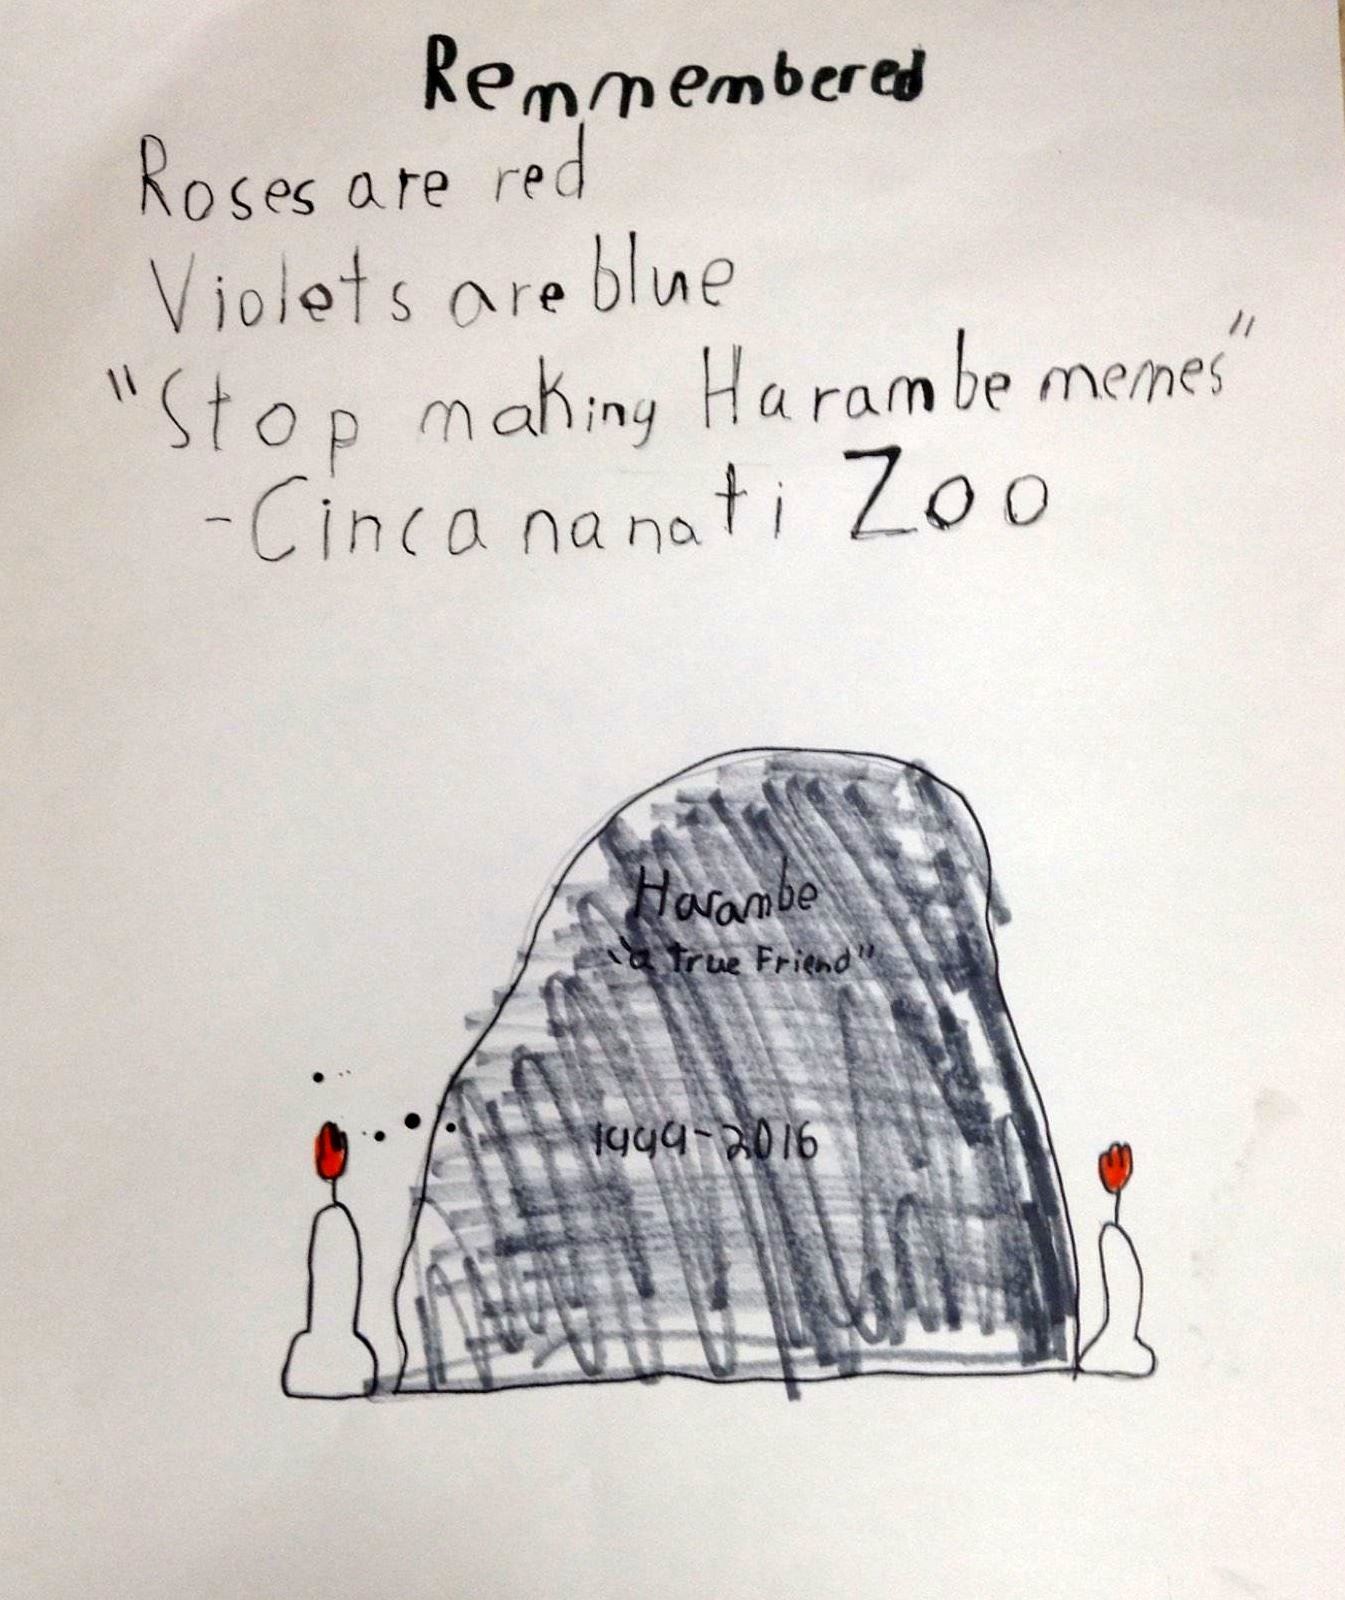 Remmembered
Roses are red
Violets are blue
"Stop making Harambe memes"
-Cincananati Zoo
Harambe
"a true Friend"
1999-2016